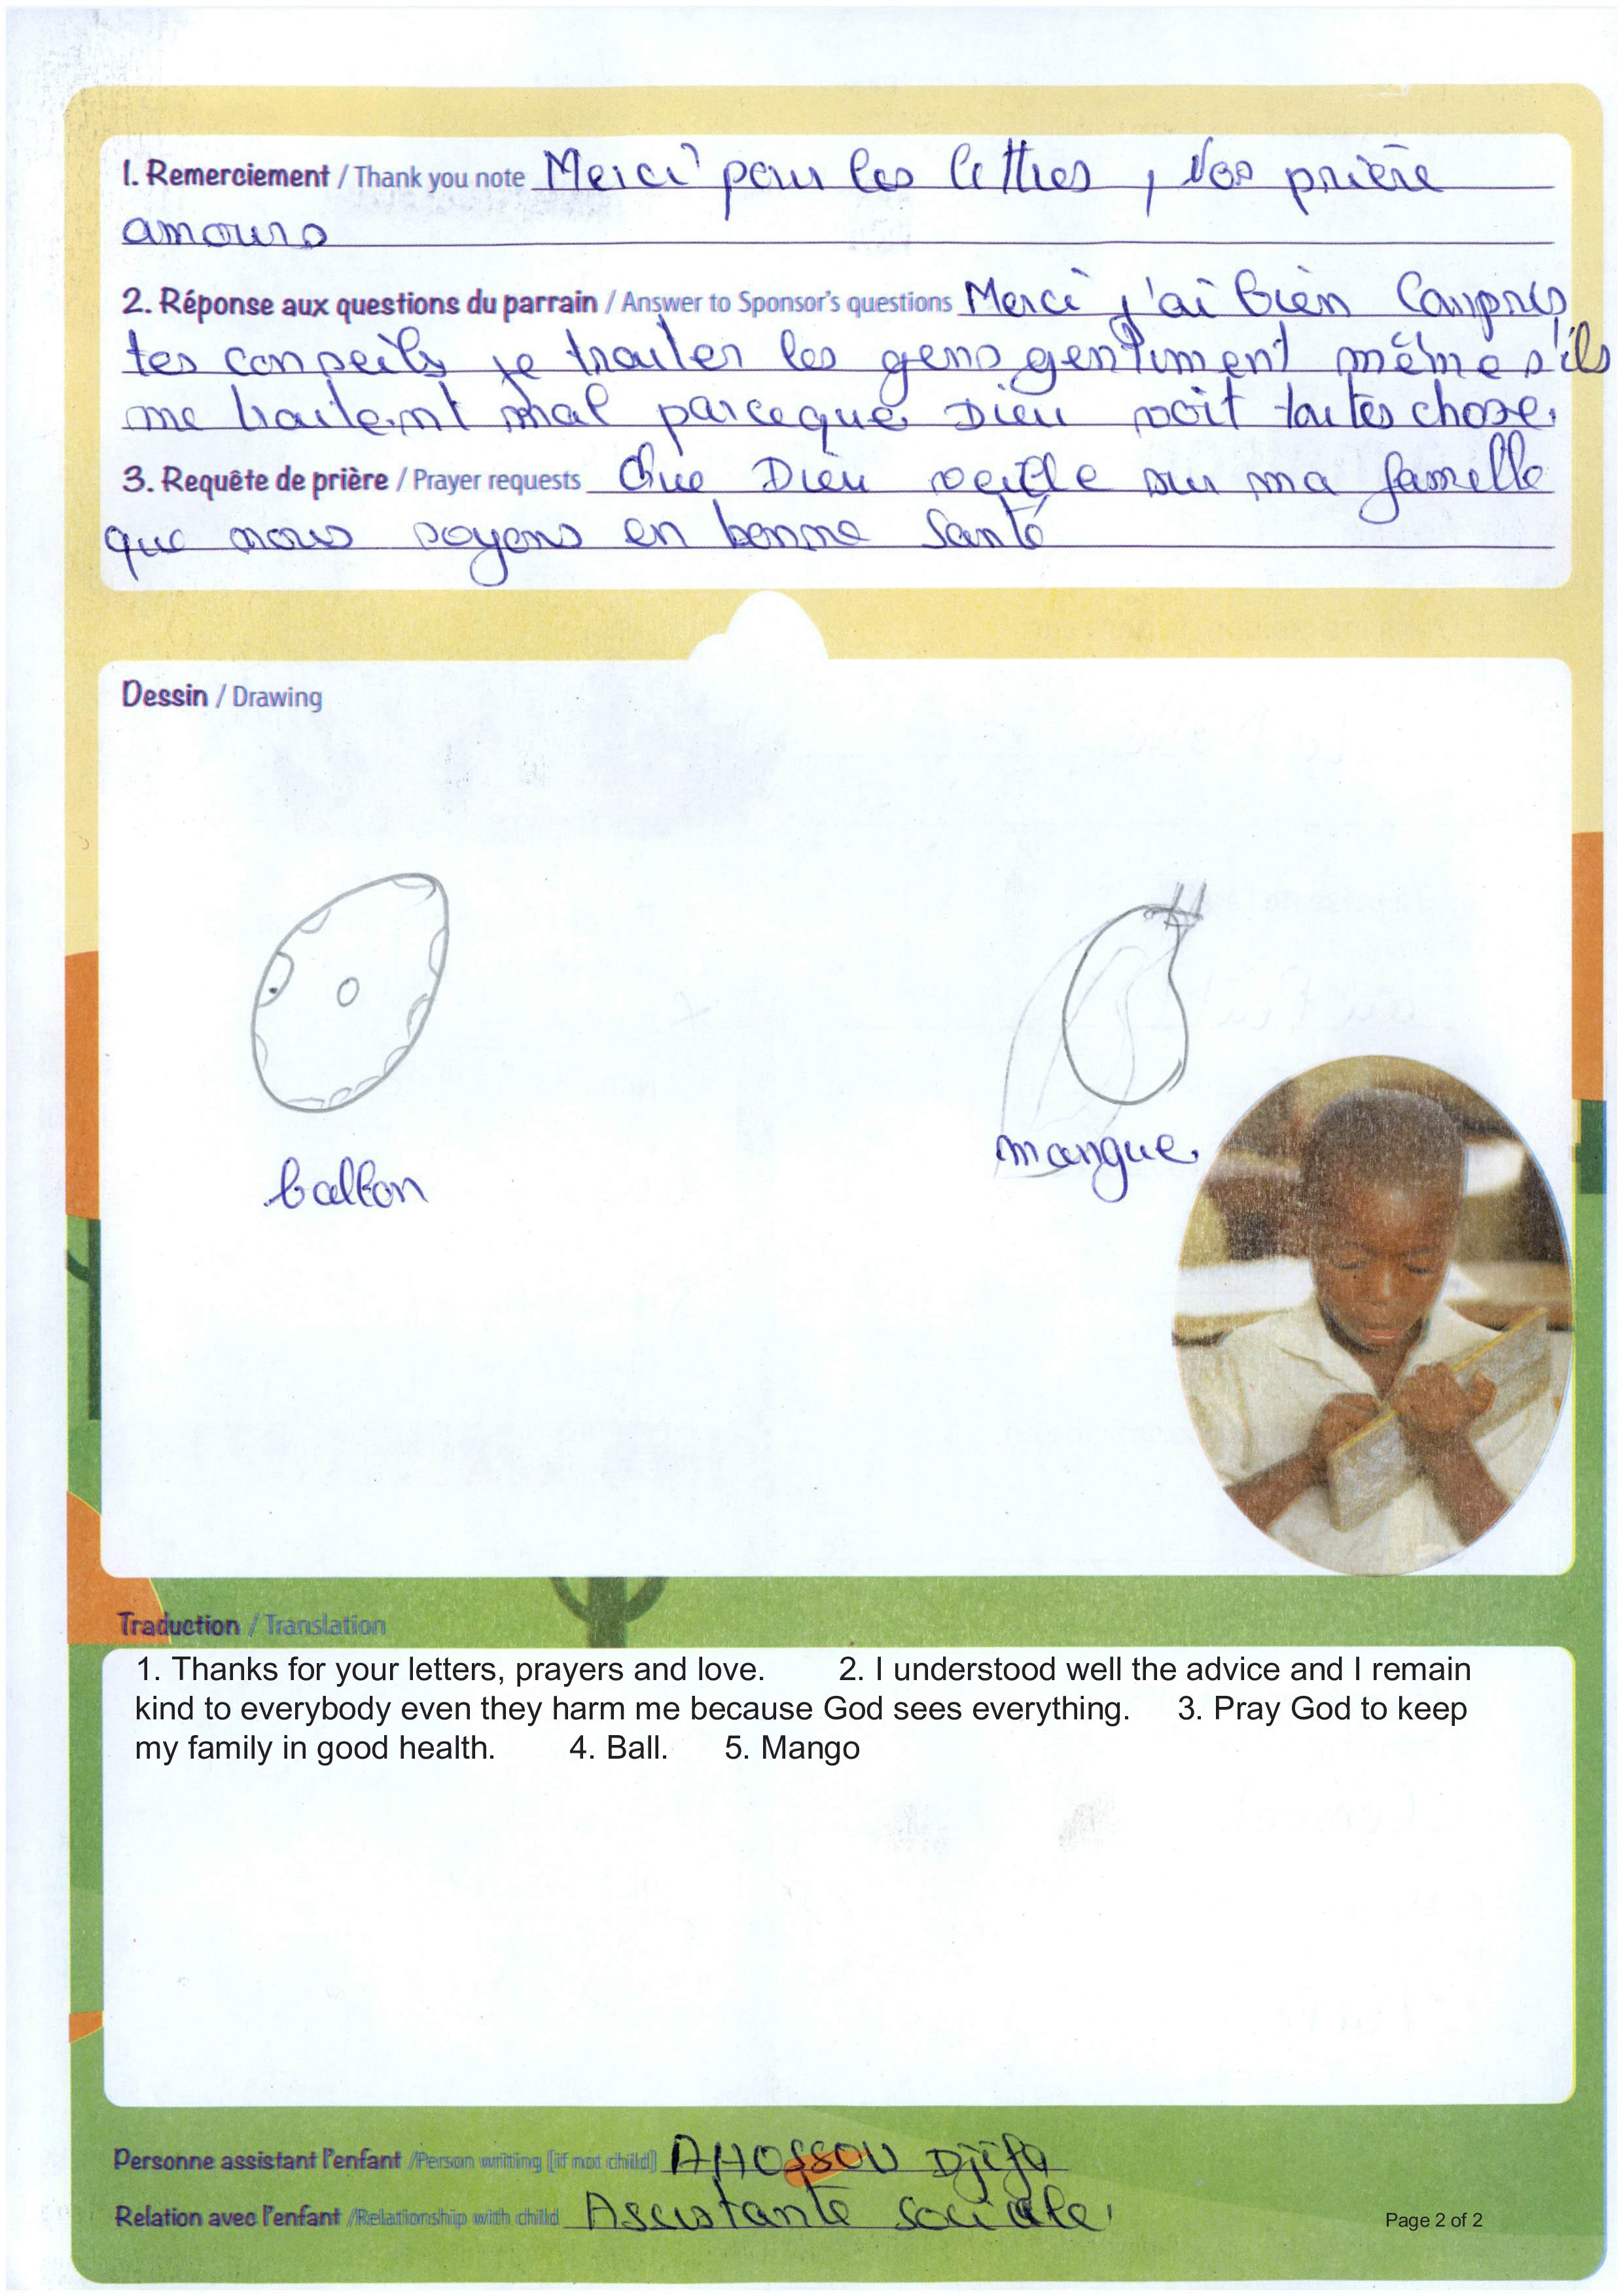 1. Remerciement / Thank you note Merci pour les lettres, Vos prière
amours
2. Réponse aux questions du parrain / Answer to Sponsor's questions Merci j'ai bien Compris
tes conseils je traiter les gens gentiment même s'ils
me traitent mal parceque Dieu voit toutes chose.
3. Requête de prière / Prayer requests Que Dieu veille sur ma famille
que nous soyons en bonne Santé
Dessin / Drawing
ballon
mangue
Traduction / Translation
1. Thanks for your letters, prayers and love. 2. I understood well the advice and I remain
kind to everybody even they harm me because God sees everything. 3. Pray God to keep
my family in good health. 4. Ball. 5. Mango
Personne assistant l'enfant /Person writing [if not child] AHOSSOU Djifa
Relation avec l'enfant /Relationship with child Assistante sociale
Page 2 of 2